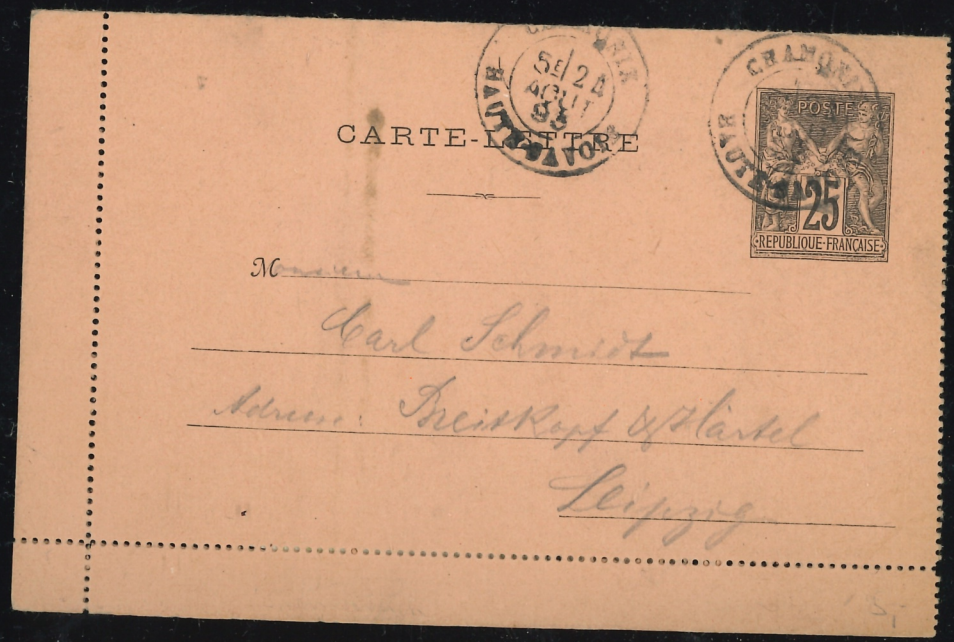 CHAMONIX
5E 24
AOUT
93
HAUTE SAVOIE
CHAMONIX
HAUTE SA
POSTES
25
REPUBLIQUE-FRANÇAISE
CARTE-LETTRE
Monsieur
Carl Schmidt
Adresse: Breitkopf & Härtel
Leipzig